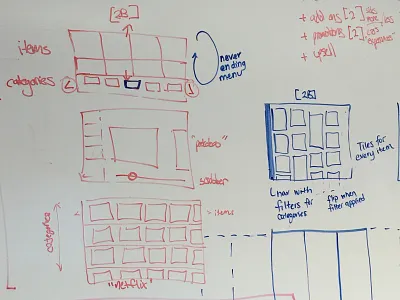 [2B]
items
categories
never
ending
menu
+ add ons [2]
+ promotions [2]
+ upsell
"pandora"
scrubber
categories
items
"netflix"
[2B]
Tiles for
every item
L nav with
filters for
categories
flip when
filter applied